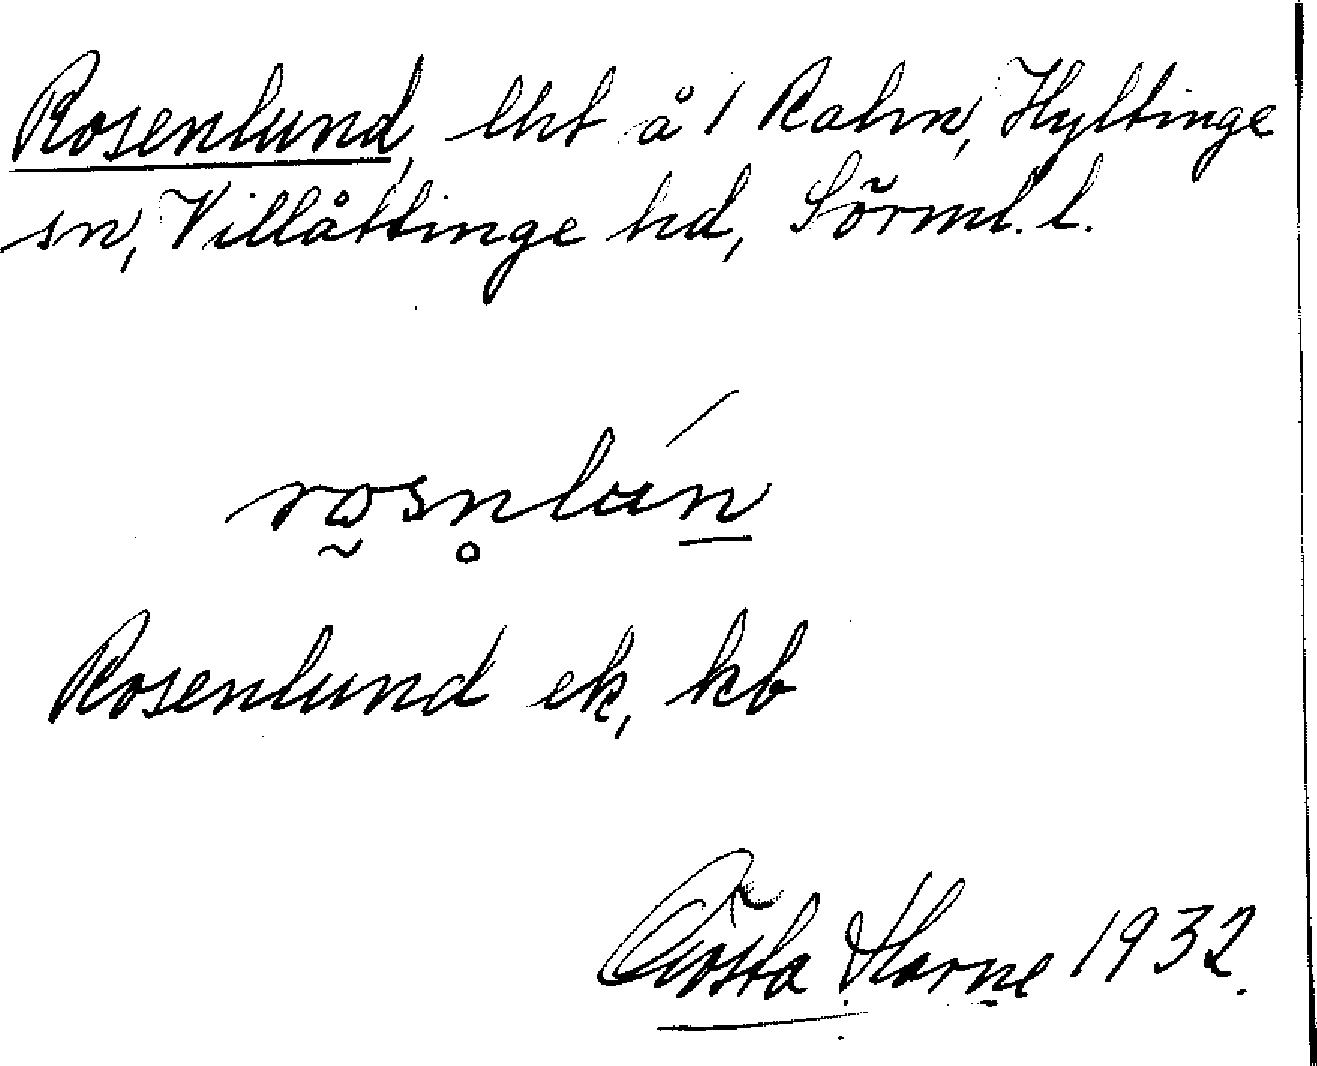 Rosenlund, lht å 1 Rahn, Hyltinge
sn, Villåttinge hd, Sörml. l.
rosnlún
Rosenlund ek, kb
Gösta Horne 1932.